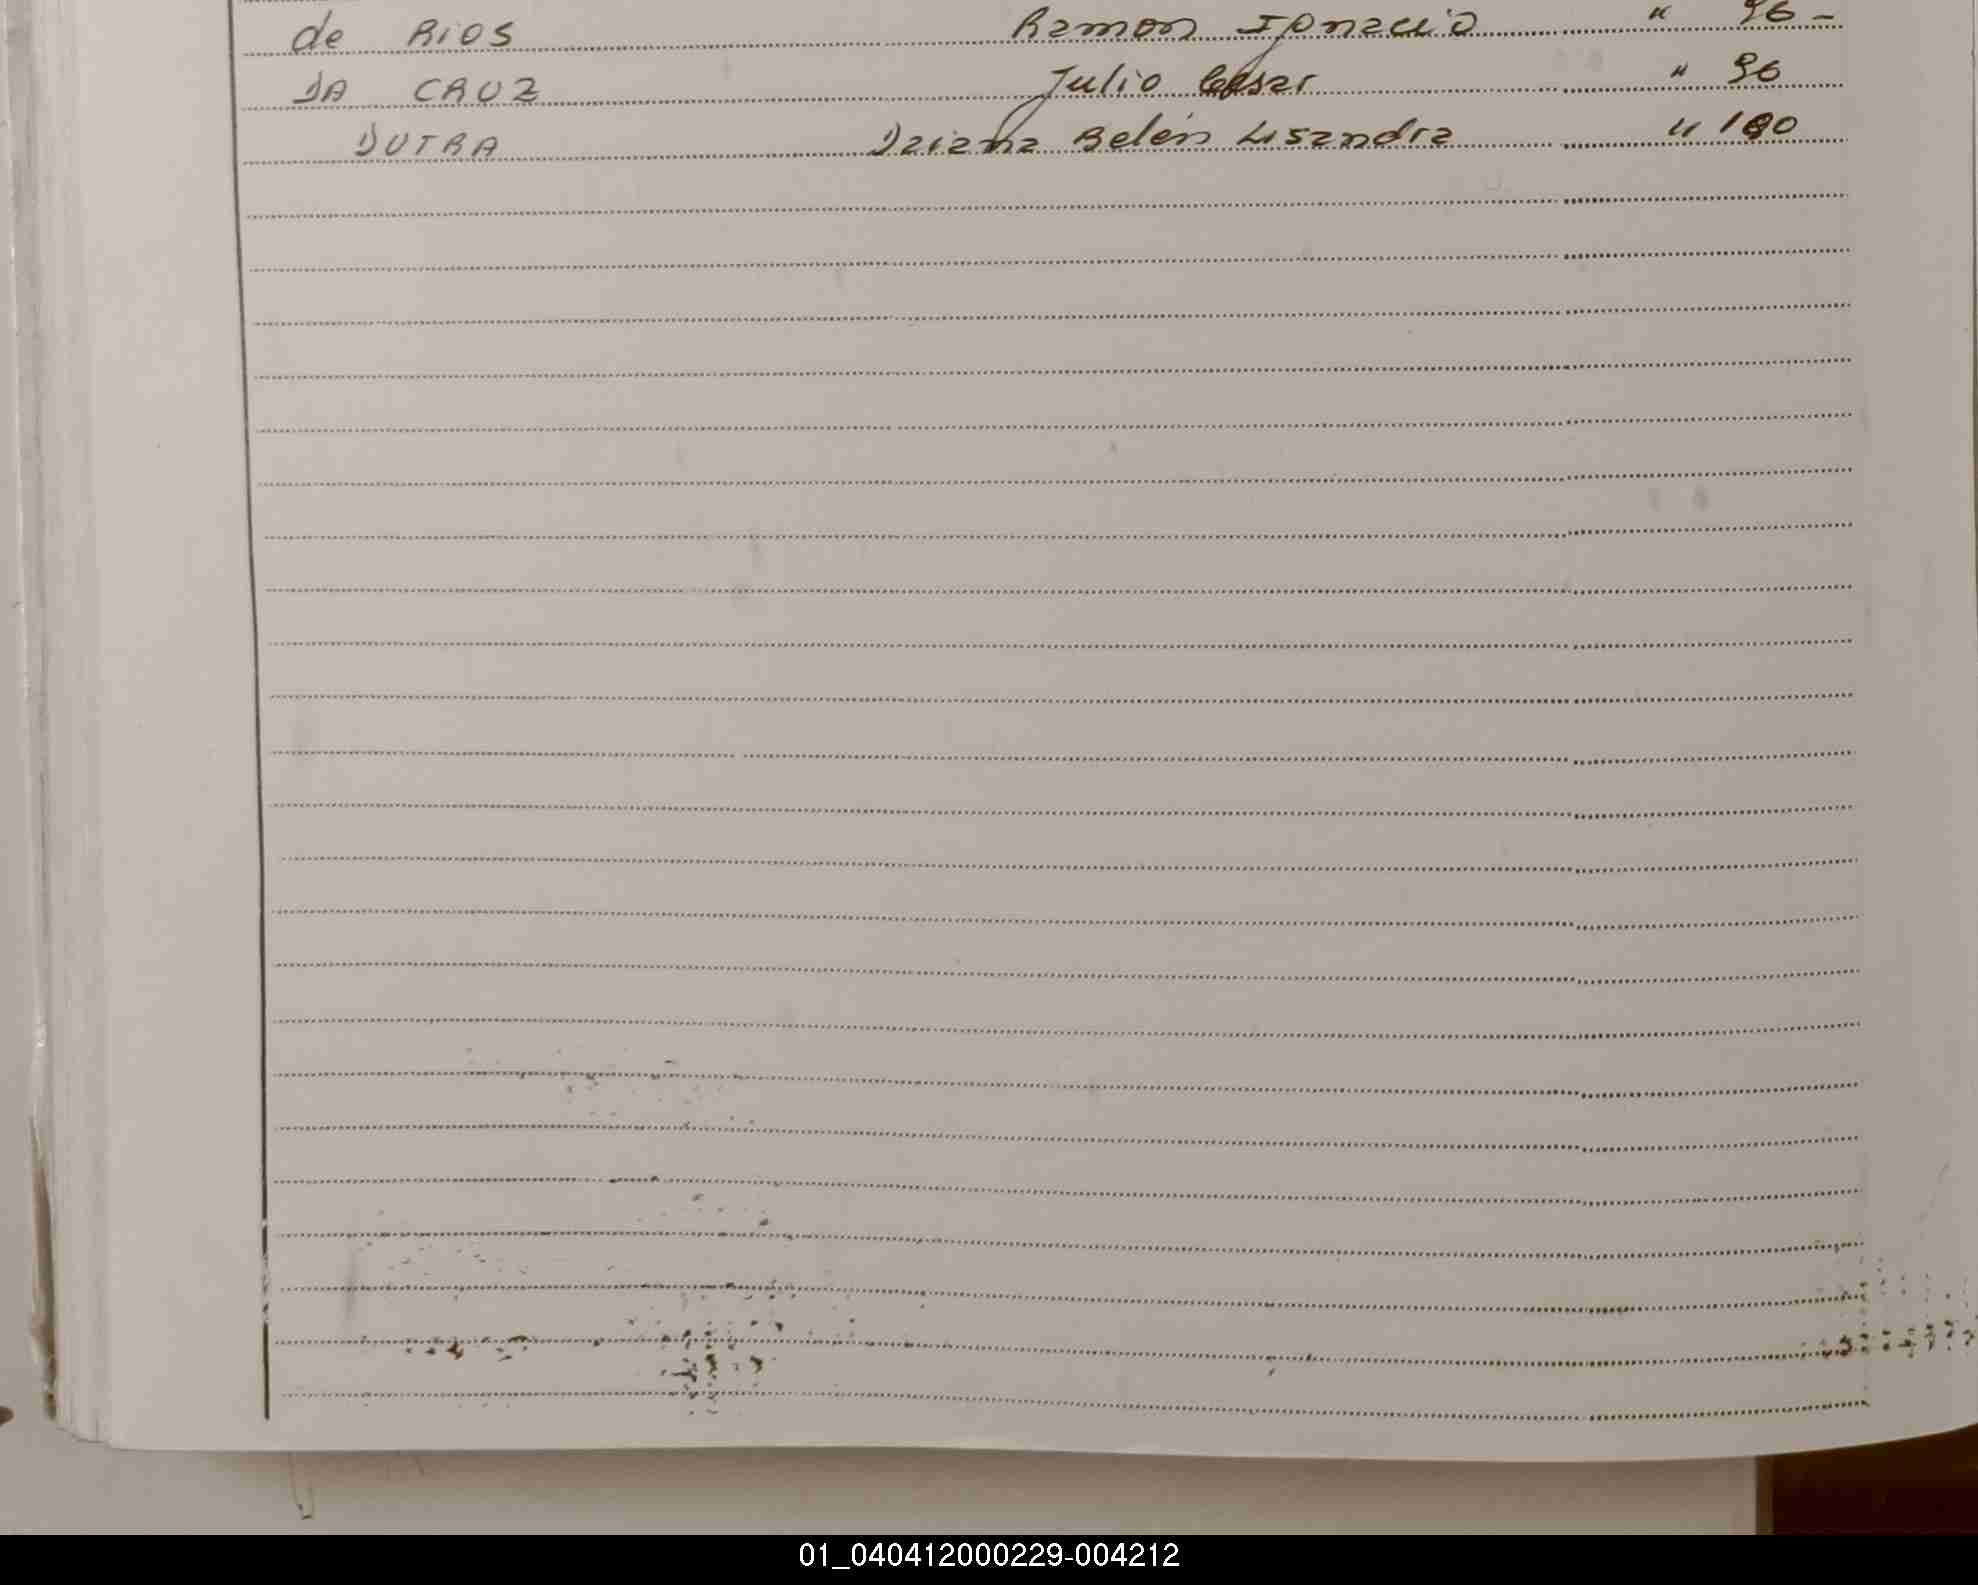 de RIOS Ramon Ignacio " 96 -
DA CRUZ Julio Cesar " 96
DUTRA Daiana Belén Lisandra " 100
01_040412000229-004212